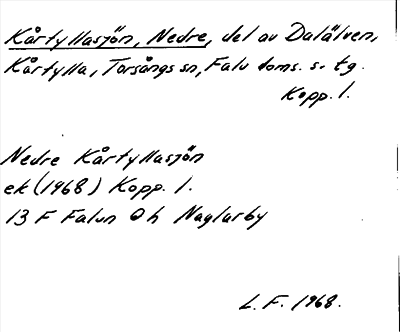 Kårtyllasjön, Nedre, del av Dalälven,
Kårtylla, Torsångs sn, Falu doms. s. tg.
Kopp. l.
Nedre Kårtyllasjön
ek (1968) Kopp. l.
13 F Falun Ö h Naglarby
L. F. 1968.